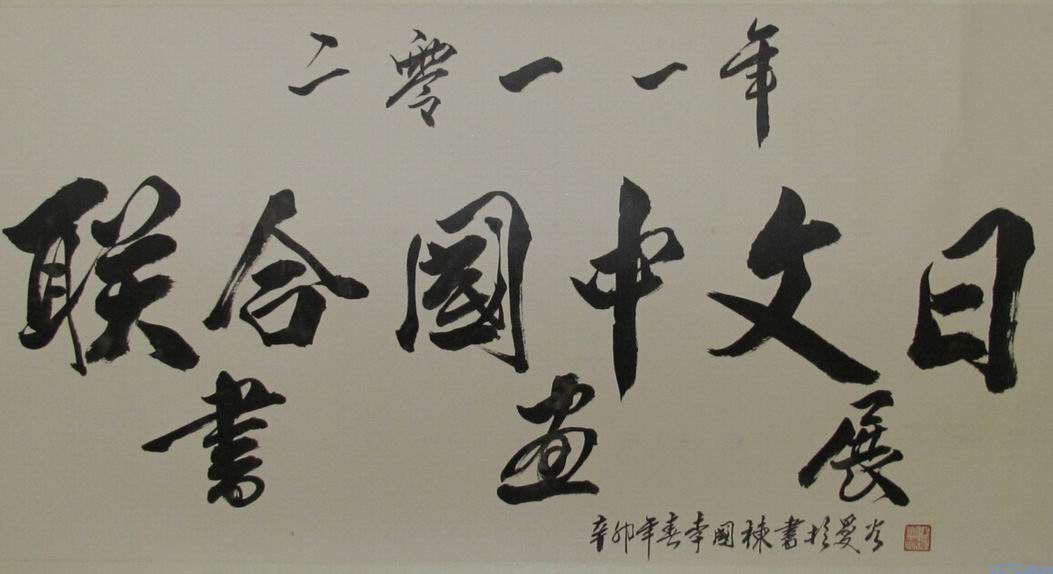 二零一一年
联合國中文日
書画展
辛卯年春李國棟書於愛谷